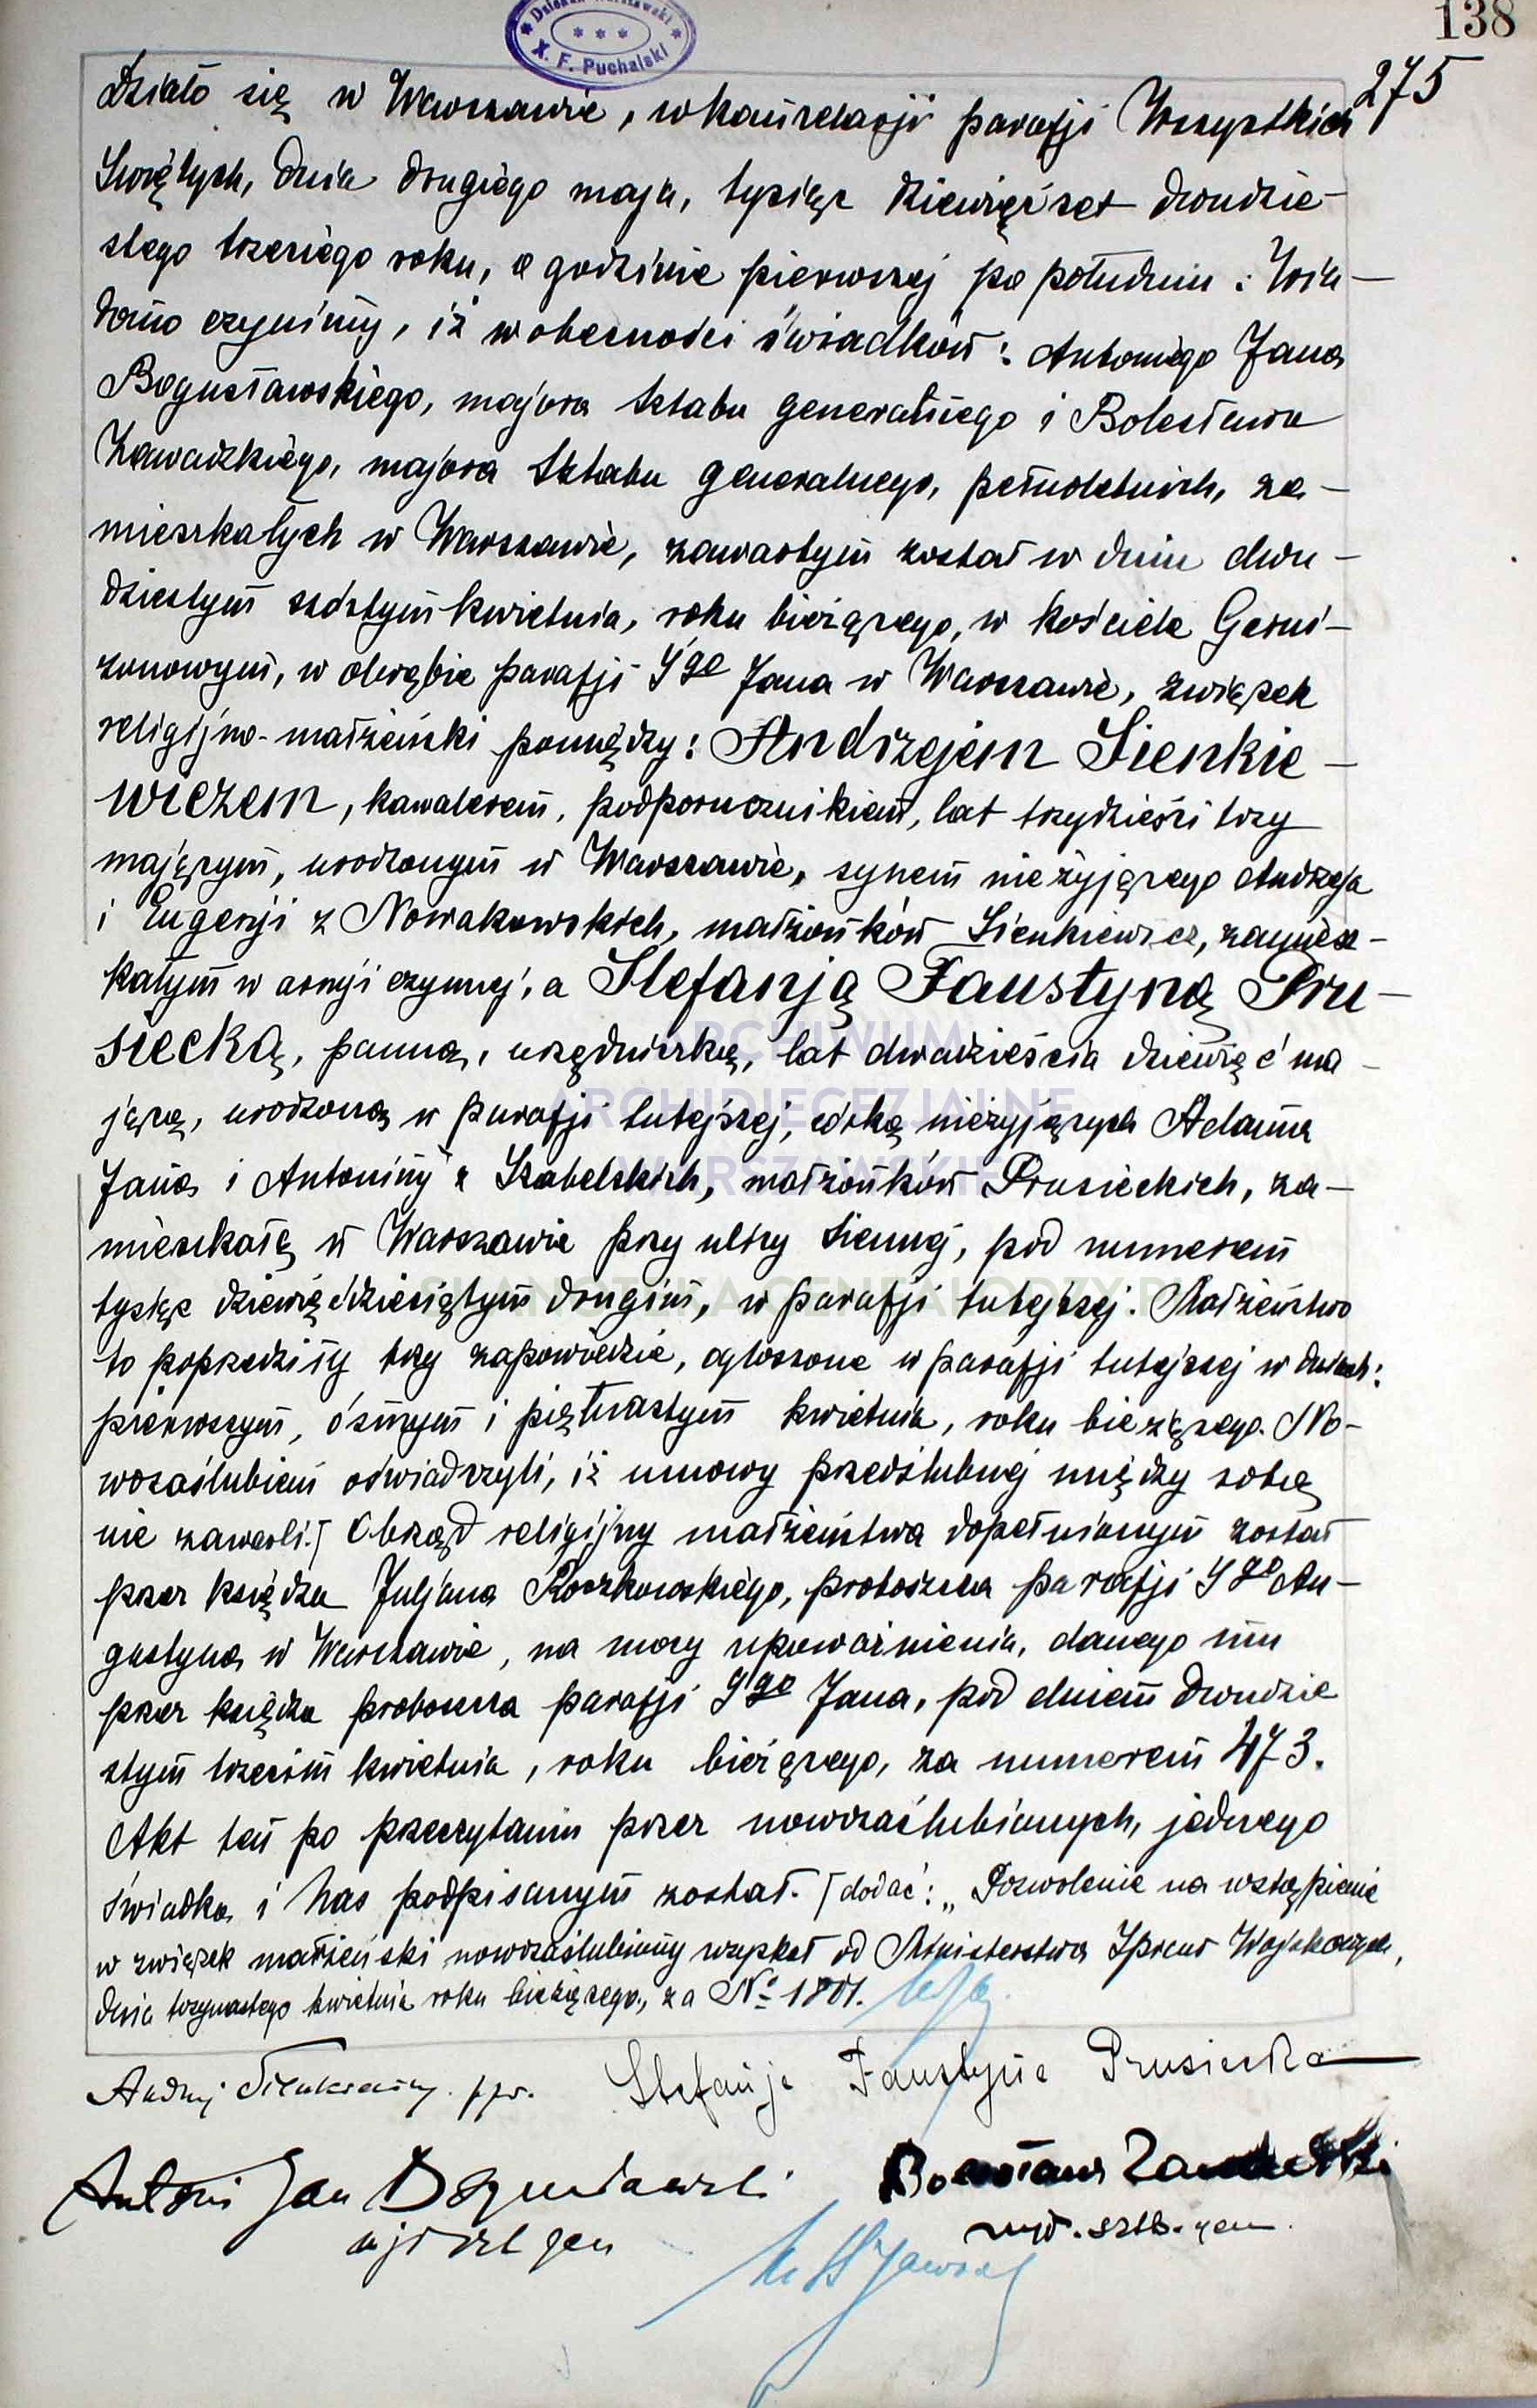 138
Dziekan Warszawski
X. F. Puchalski
275
Działo się w Warszawie, w kancelarji parafji Wszystkich
Świętych, dnia drugiego maja, tysiąc dziewięćset dwudzie-
stego trzeciego roku, o godzinie pierwszej po południu: Wia-
domo czynimy, iż w obecności świadków: Antoniego Jana
Bogusławskiego, majora sztabu generalnego i Bolesława
Zawadzkiego, majora sztabu generalnego, pełnoletnich, za-
mieszkałych w Warszawie, zawartym został w dniu dwu-
dziestym szóstym kwietnia, roku bieżącego, w kościele Garni-
zonowym, w obrębie parafji Ś-go Jana w Warszawie, związek
religijno-małżeński pomiędzy: Andrzejem Sienkie-
wiczem, kawalerem, podporucznikiem, lat trzydzieści trzy
mającym, urodzonym w Warszawie, synem nieżyjącego Andrzeja
i Eugenji z Nowakowskich, małżonków Sienkiewicz, zamiesz-
kałym w armji czynnej, a Stefanją Faustyną Pru-
siecką, panną, urzędniczką, lat dwadzieścia dziewięć ma-
jącą, urodzoną w parafji tutejszej, córką nieżyjących Adama
Jana i Antoniny z Szabelskich, małżonków Prusieckich, za-
mieszkałą w Warszawie przy ulicy Siennej, pod numerem
tysiąc dziewięćdziesiątym drugim, w parafji tutejszej. Małżeństwo
to poprzedziły trzy zapowiedzie, ogłoszone w parafji tutejszej w dniach:
pierwszym, ósmym i piętnastym kwietnia, roku bieżącego. No-
wozaślubieni oświadczyli, iż umowy przedślubnej między sobą
nie zawarli.⌈ Obrząd religijny małżeństwa dopełnionym został
przez księdza Juljana Roczkowskiego, proboszcza parafji Ś-go Au-
gustyna w Warszawie, na mocy upoważnienia, danego mu
przez księdza proboszcza parafji Ś-go Jana, pod dniem dwudzie
stym trzecim kwietnia, roku bieżącego, za numerem 473.
Akt ten po przeczytaniu przez nowozaślubionych, jednego
świadka i Nas podpisanym został. ⌈dodać: „Pozwolenie na wstąpienie
w związek małżeński nowozaślubiony uzyskał od Ministerstwa Spraw Wojskowych,
dnia trzynastego kwietnia roku bieżącego, za № 1801.
Andrzej Sienkiewicz ppr. Stefanja Faustyna Prusiecka
Antoni Jan Bogusławski Bolesław Zawadzki
mjr szt gen mjr. sztb. gen.
ARCHIWUM
ARCHIDIECEZJALNE
WARSZAWSKIE